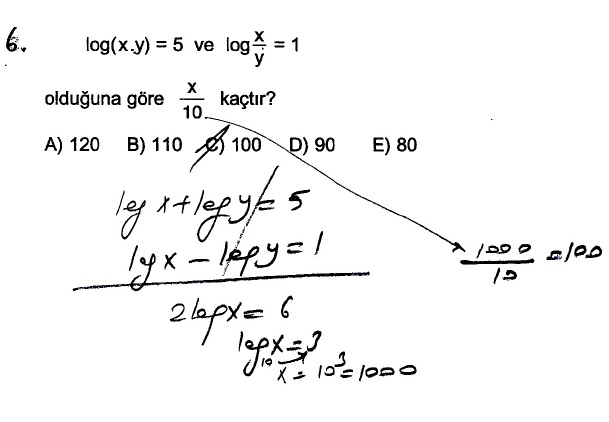 6. log(x.y) = 5 ve log x/y = 1
olduğuna göre x/10 kaçtır?
A) 120 B) 110 C) 100 D) 90 E) 80
log x + log y = 5
log x − log y = 1
1000/10 = 100
2 log x = 6
log₁₀ x = 3
x = 10³ = 1000